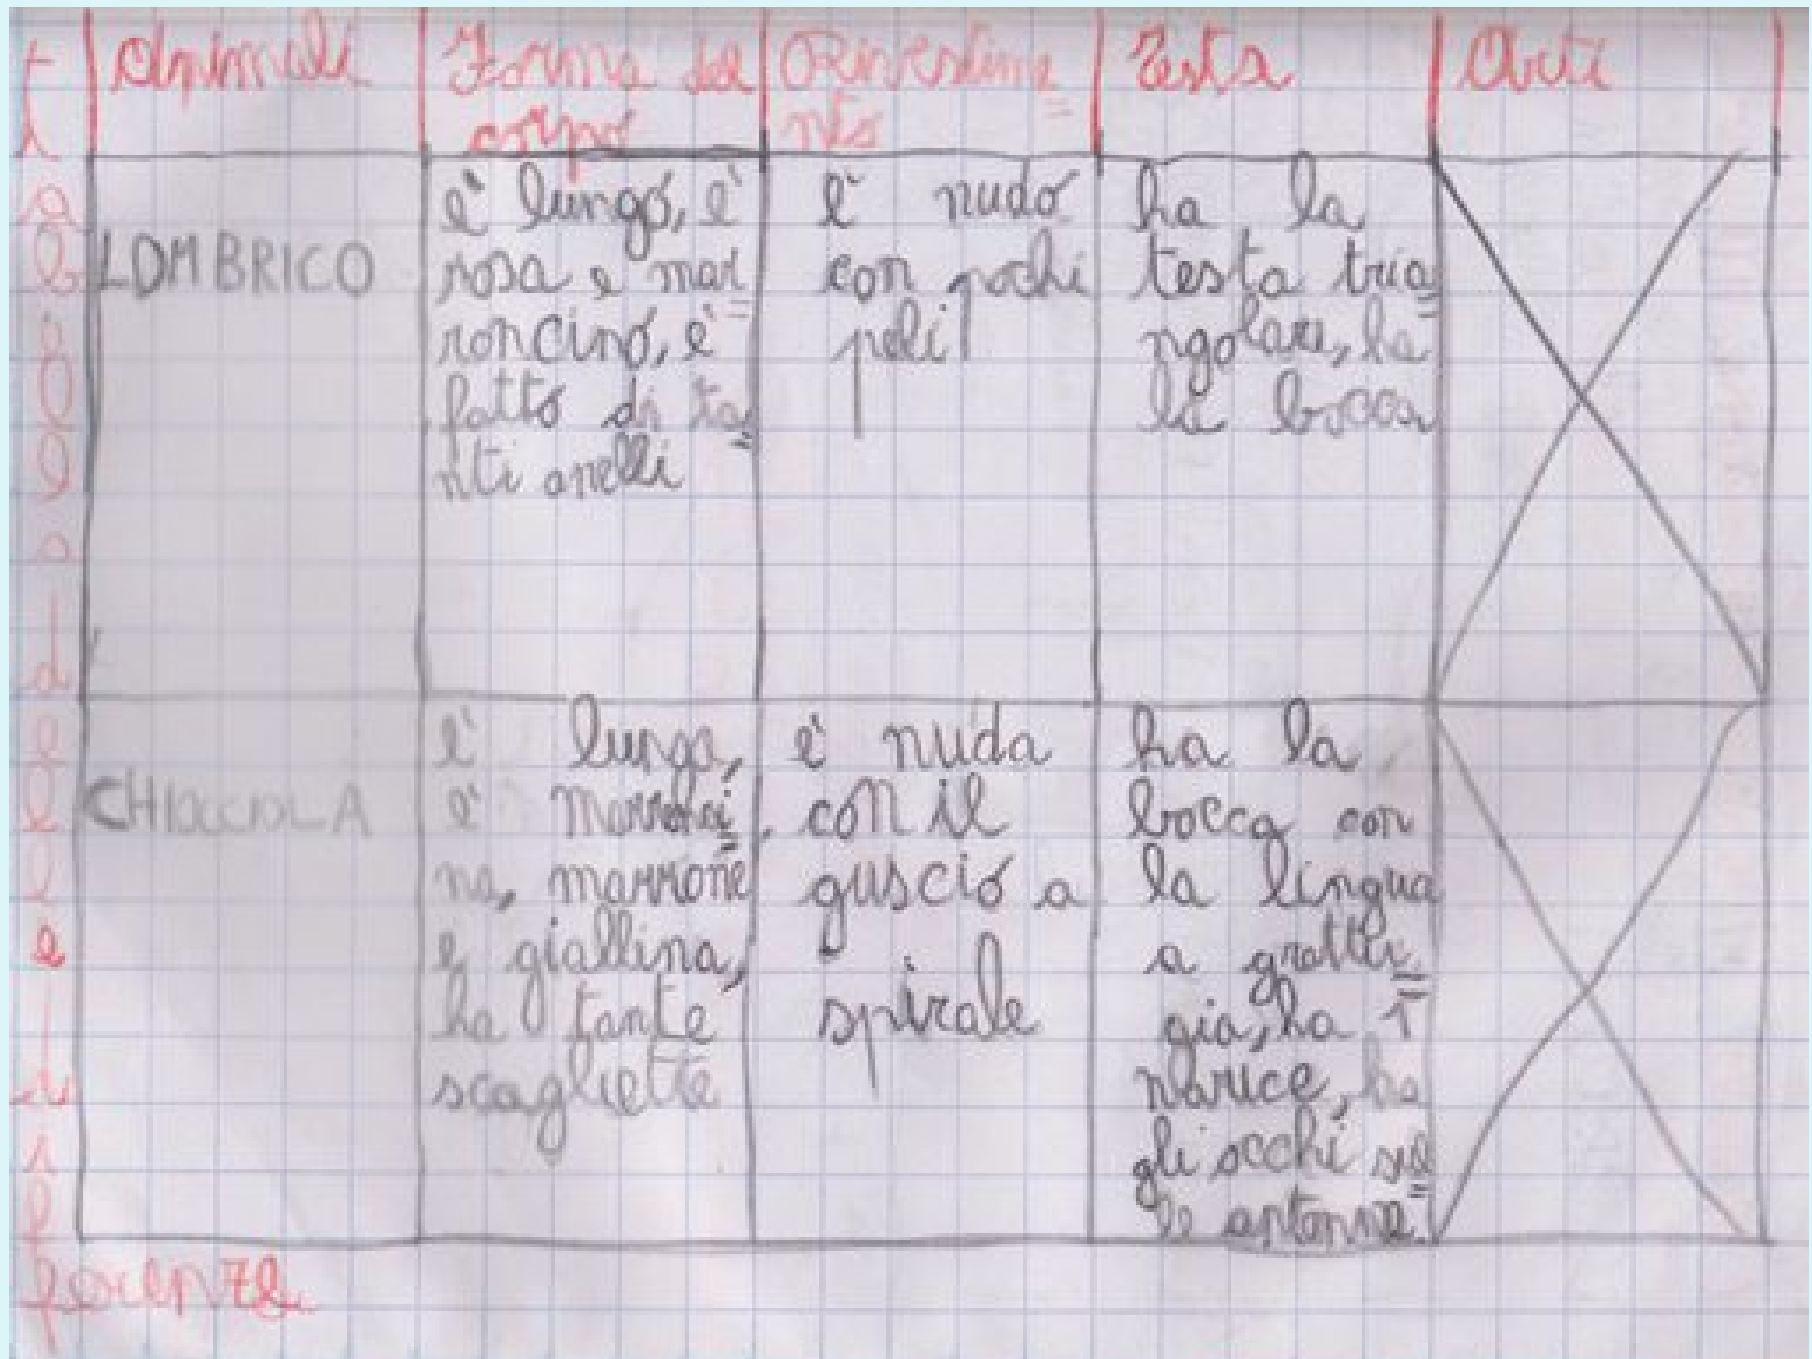 Animali
Forma del
corpo
Rivestime=
nto
Testa
Arti
LOMBRICO
è lungo, è
rosa e mar=
roncino, è
fatto di ta=
nti anelli
è nudo
con pochi
peli
ha la
testa tria=
ngolare, ha
la bocca
CHIOCCIOLA
è lunga,
è marronci=
na, marrone
e giallina,
ha tante
scagliette
è nuda
con il
guscio a
spirale
ha la
bocca con
la lingua
a grattu=
gia, ha 1
narice, ha
gli occhi sul=
le antenne.
delle
dif
ferenze